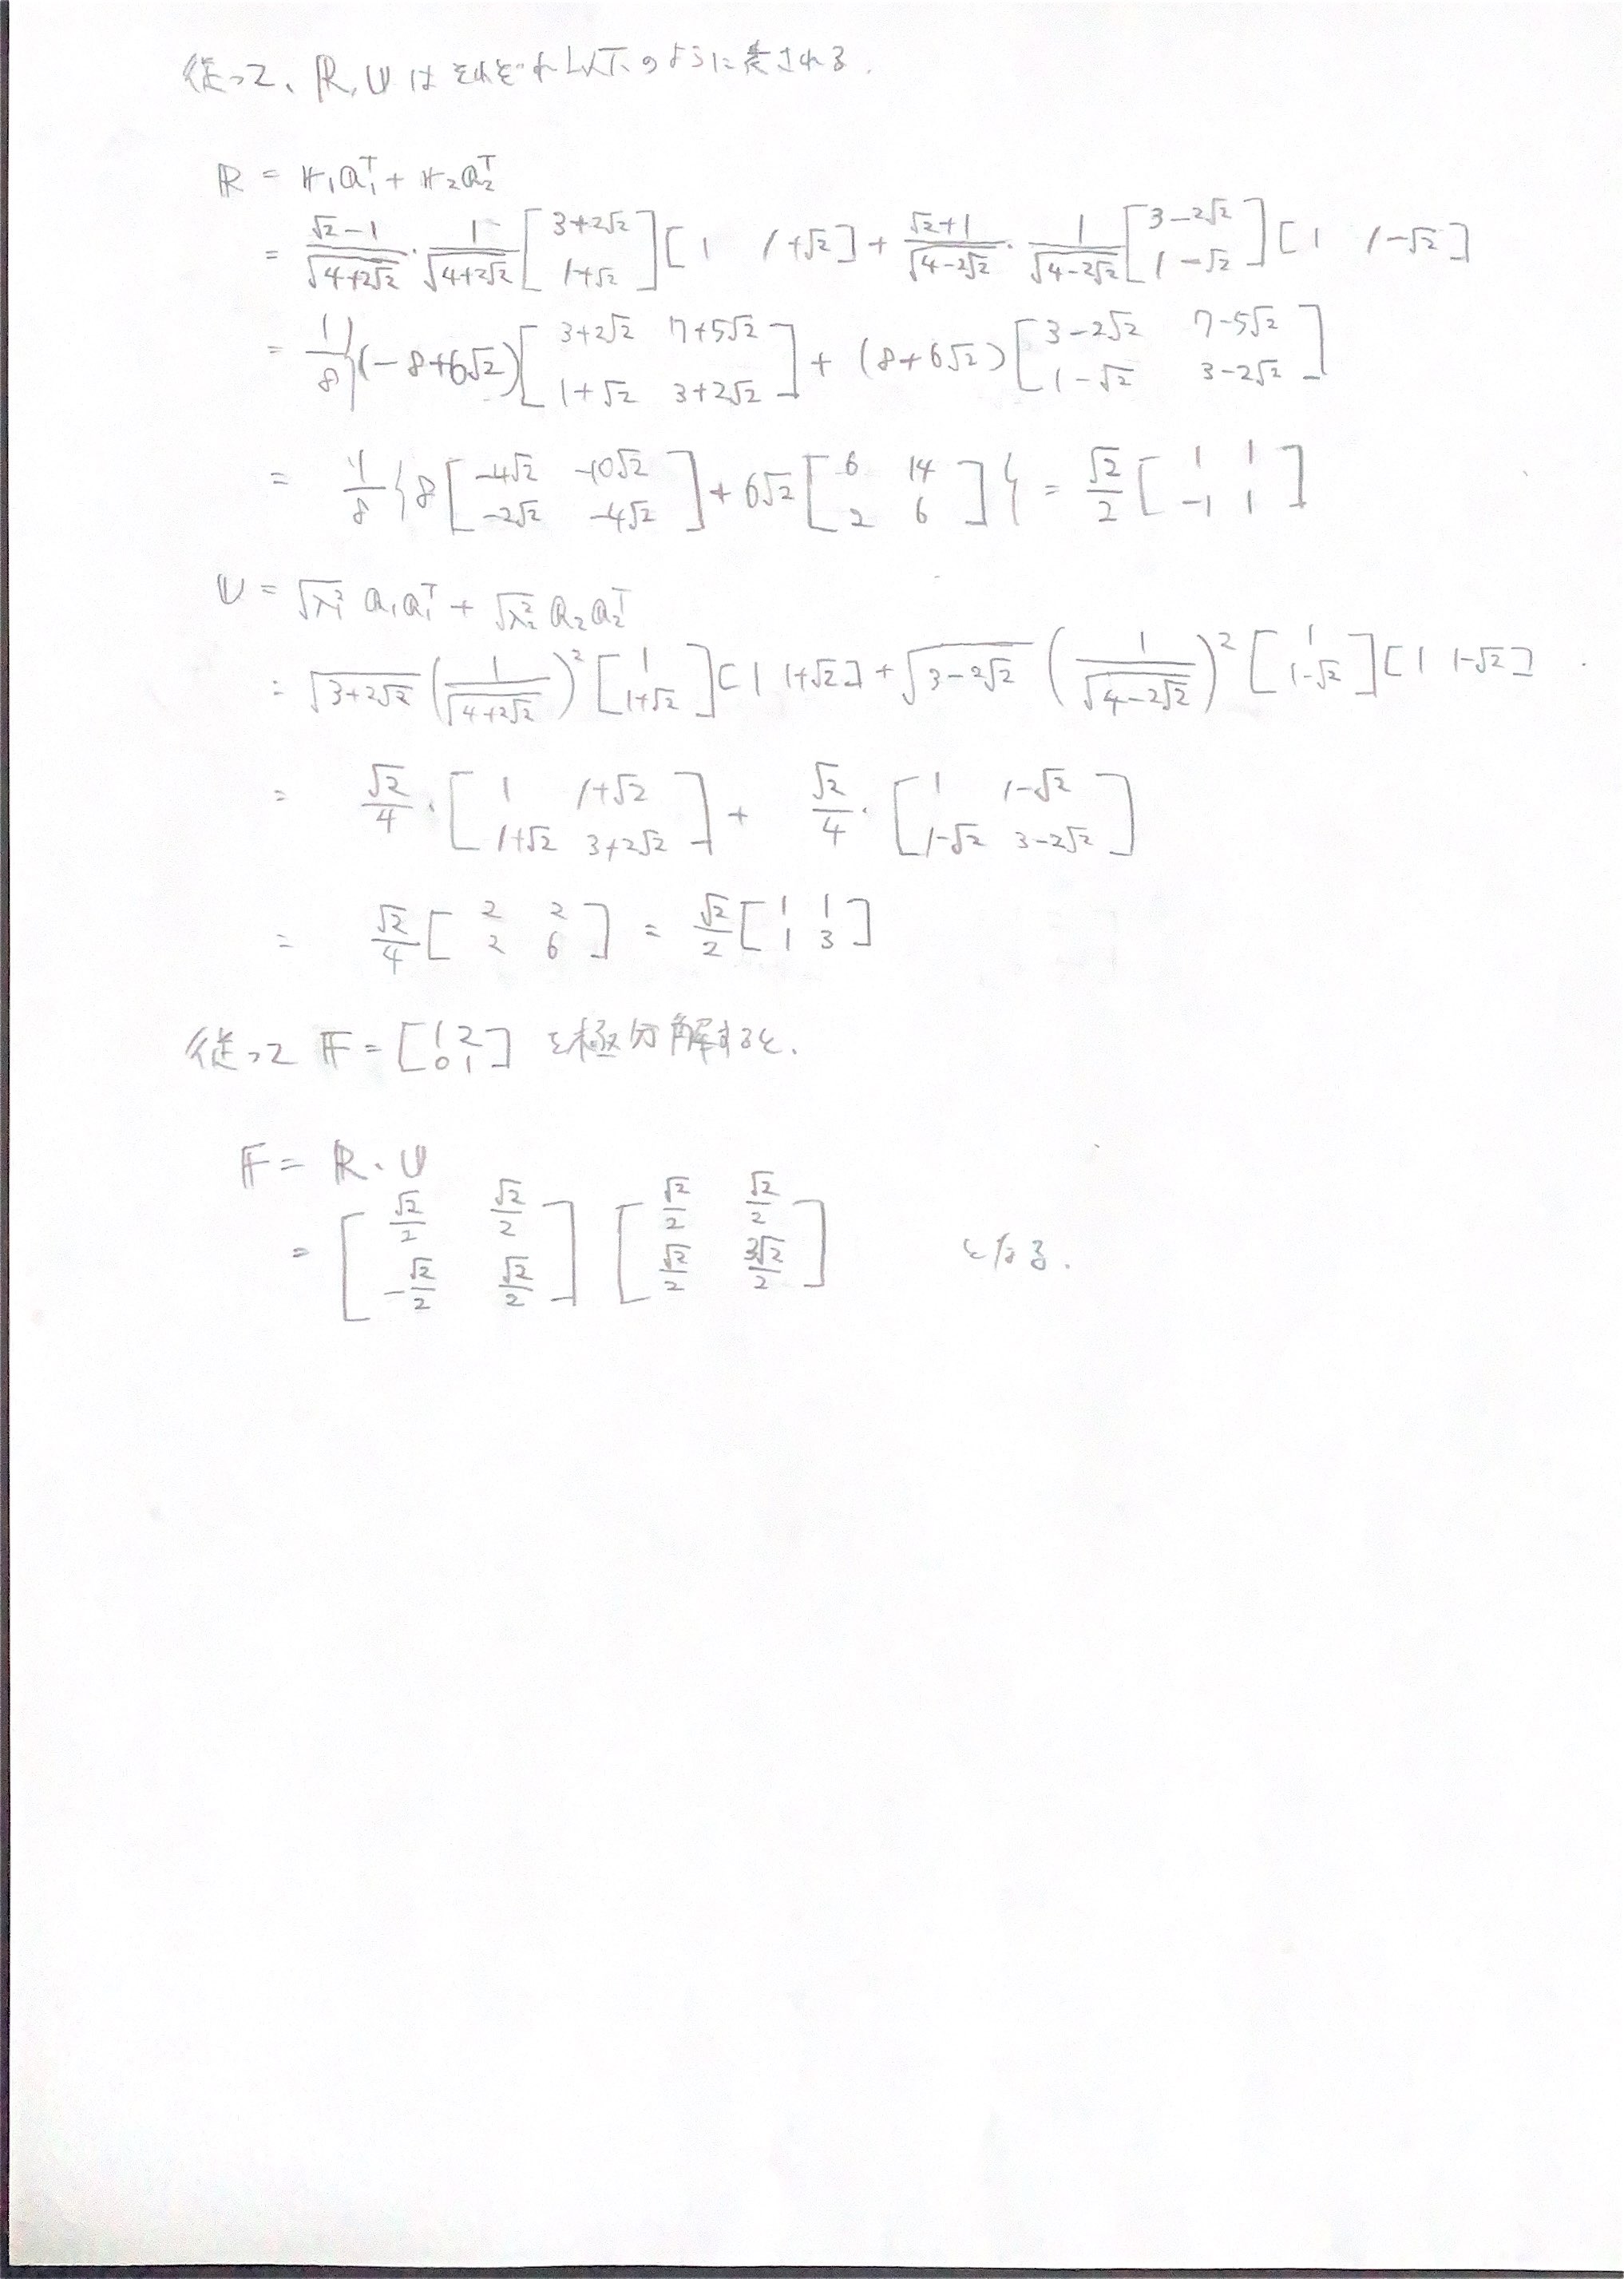 従って、ℝ, 𝕌 はそれぞれ以下のように表される.
ℝ = 𝕣₁𝕒₁ᵀ + 𝕣₂𝕒₂ᵀ
= (√2-1)/√(4+2√2) · 1/√(4+2√2) [3+2√2; 1+√2] [1 1+√2] + (√2+1)/√(4-2√2) · 1/√(4-2√2) [3-2√2; 1-√2] [1 1-√2]
= 1/8 {(-8+6√2) [3+2√2 7+5√2; 1+√2 3+2√2] + (8+6√2) [3-2√2 7-5√2; 1-√2 3-2√2]
= 1/8 {8 [-4√2 -10√2; -2√2 -4√2] + 6√2 [6 14; 2 6]} = √2/2 [1 1; -1 1]
𝕌 = √λ₁² 𝕒₁𝕒₁ᵀ + √λ₂² 𝕒₂𝕒₂ᵀ
= √(3+2√2) (1/√(4+2√2))² [1; 1+√2] [1 1+√2] + √(3-2√2) (1/√(4-2√2))² [1; 1-√2] [1 1-√2]
= √2/4 · [1 1+√2; 1+√2 3+2√2] + √2/4 · [1 1-√2; 1-√2 3-2√2]
= √2/4 [2 2; 2 6] = √2/2 [1 1; 1 3]
従って 𝔽 = [1 2; 0 1] を極分解すると.
𝔽 = ℝ · 𝕌
= [√2/2 √2/2; -√2/2 √2/2] [√2/2 √2/2; √2/2 3√2/2] となる.